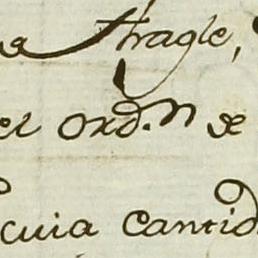 Fragle,
el ord.n de
cuia cantid